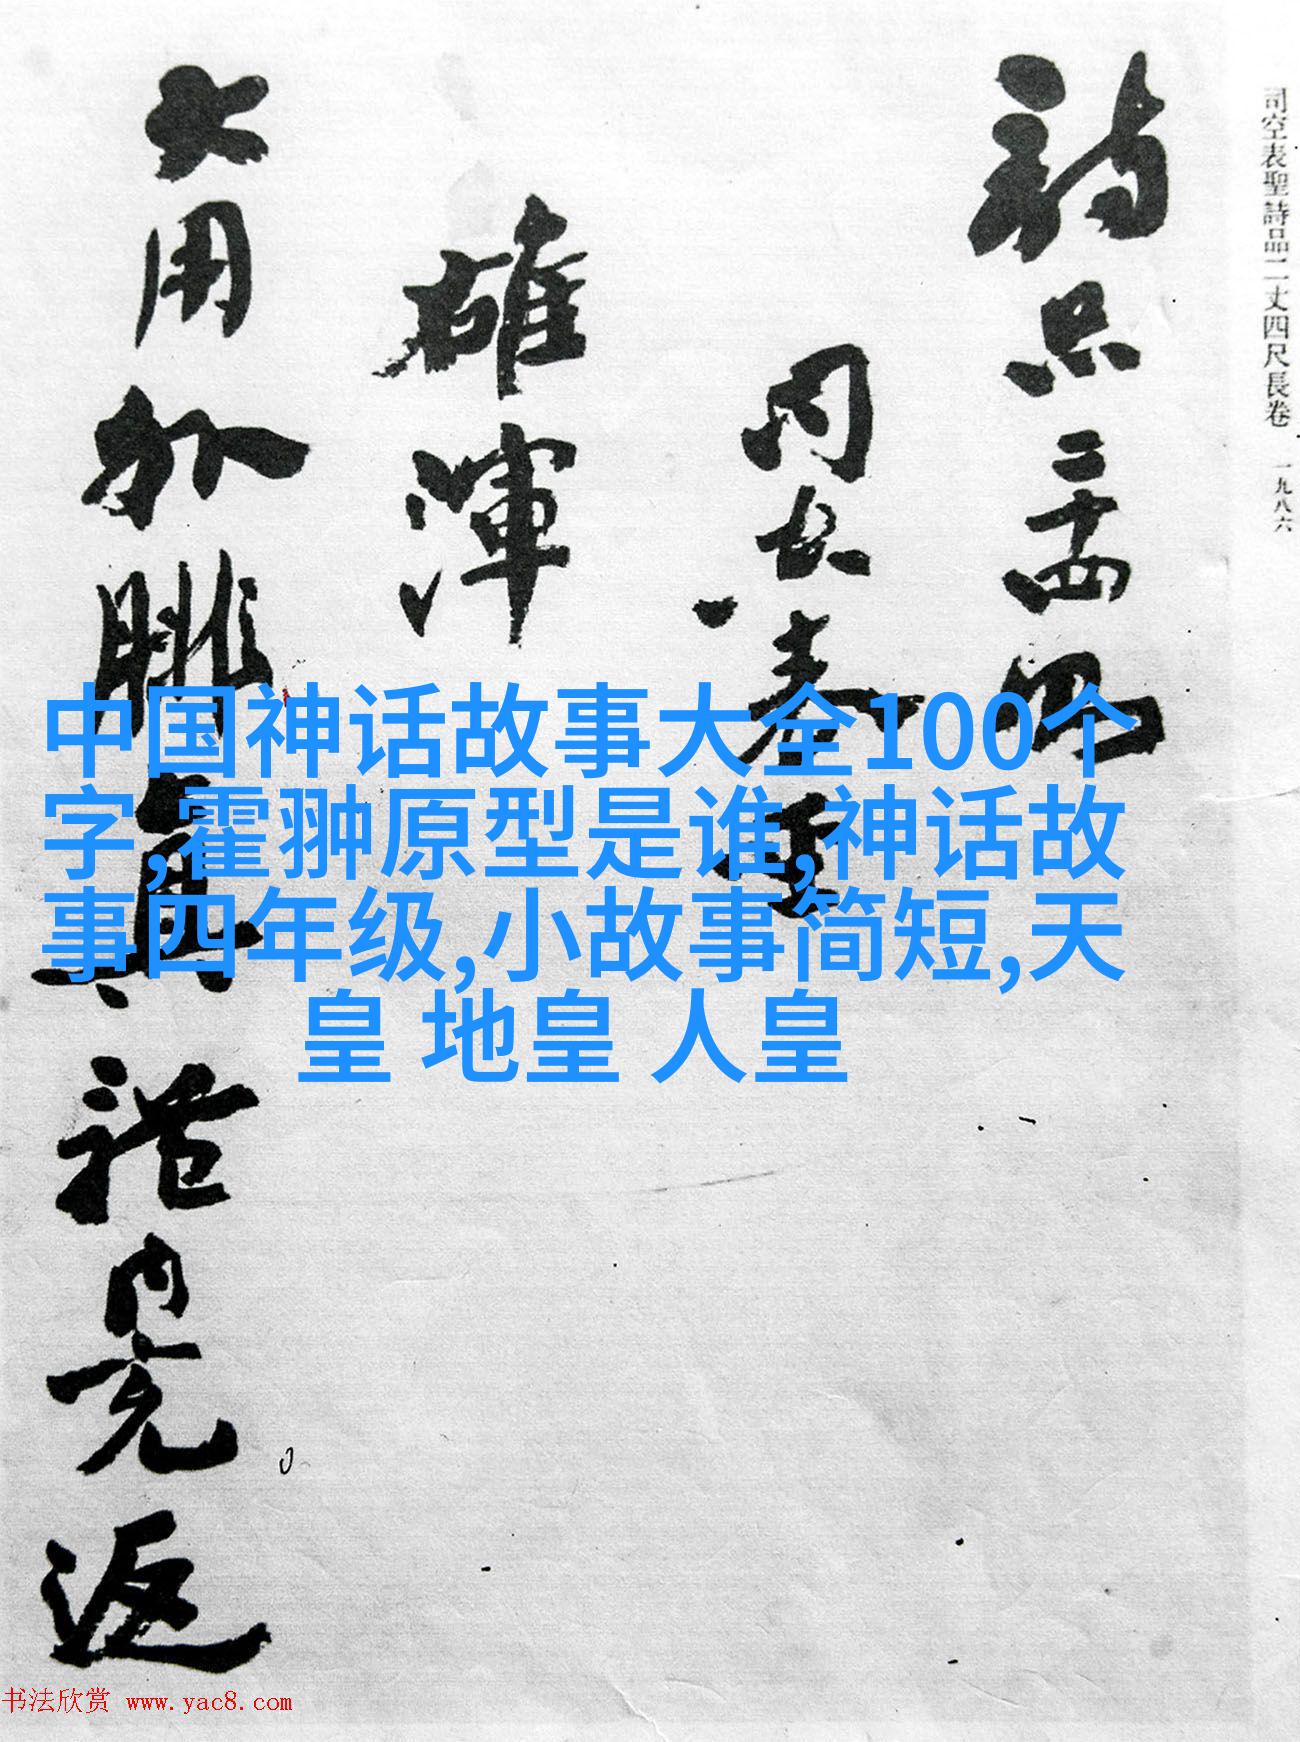 司空表聖詩品二丈四尺長卷 一九八六
詩品二十四
司空表聖
雄渾
大用外腓真體內充返
中国神话故事大全100个
字,霍翀原型是谁,神话故
事四年级,小故事简短,天
皇 地皇 人皇
书法欣赏 www.yac8.com